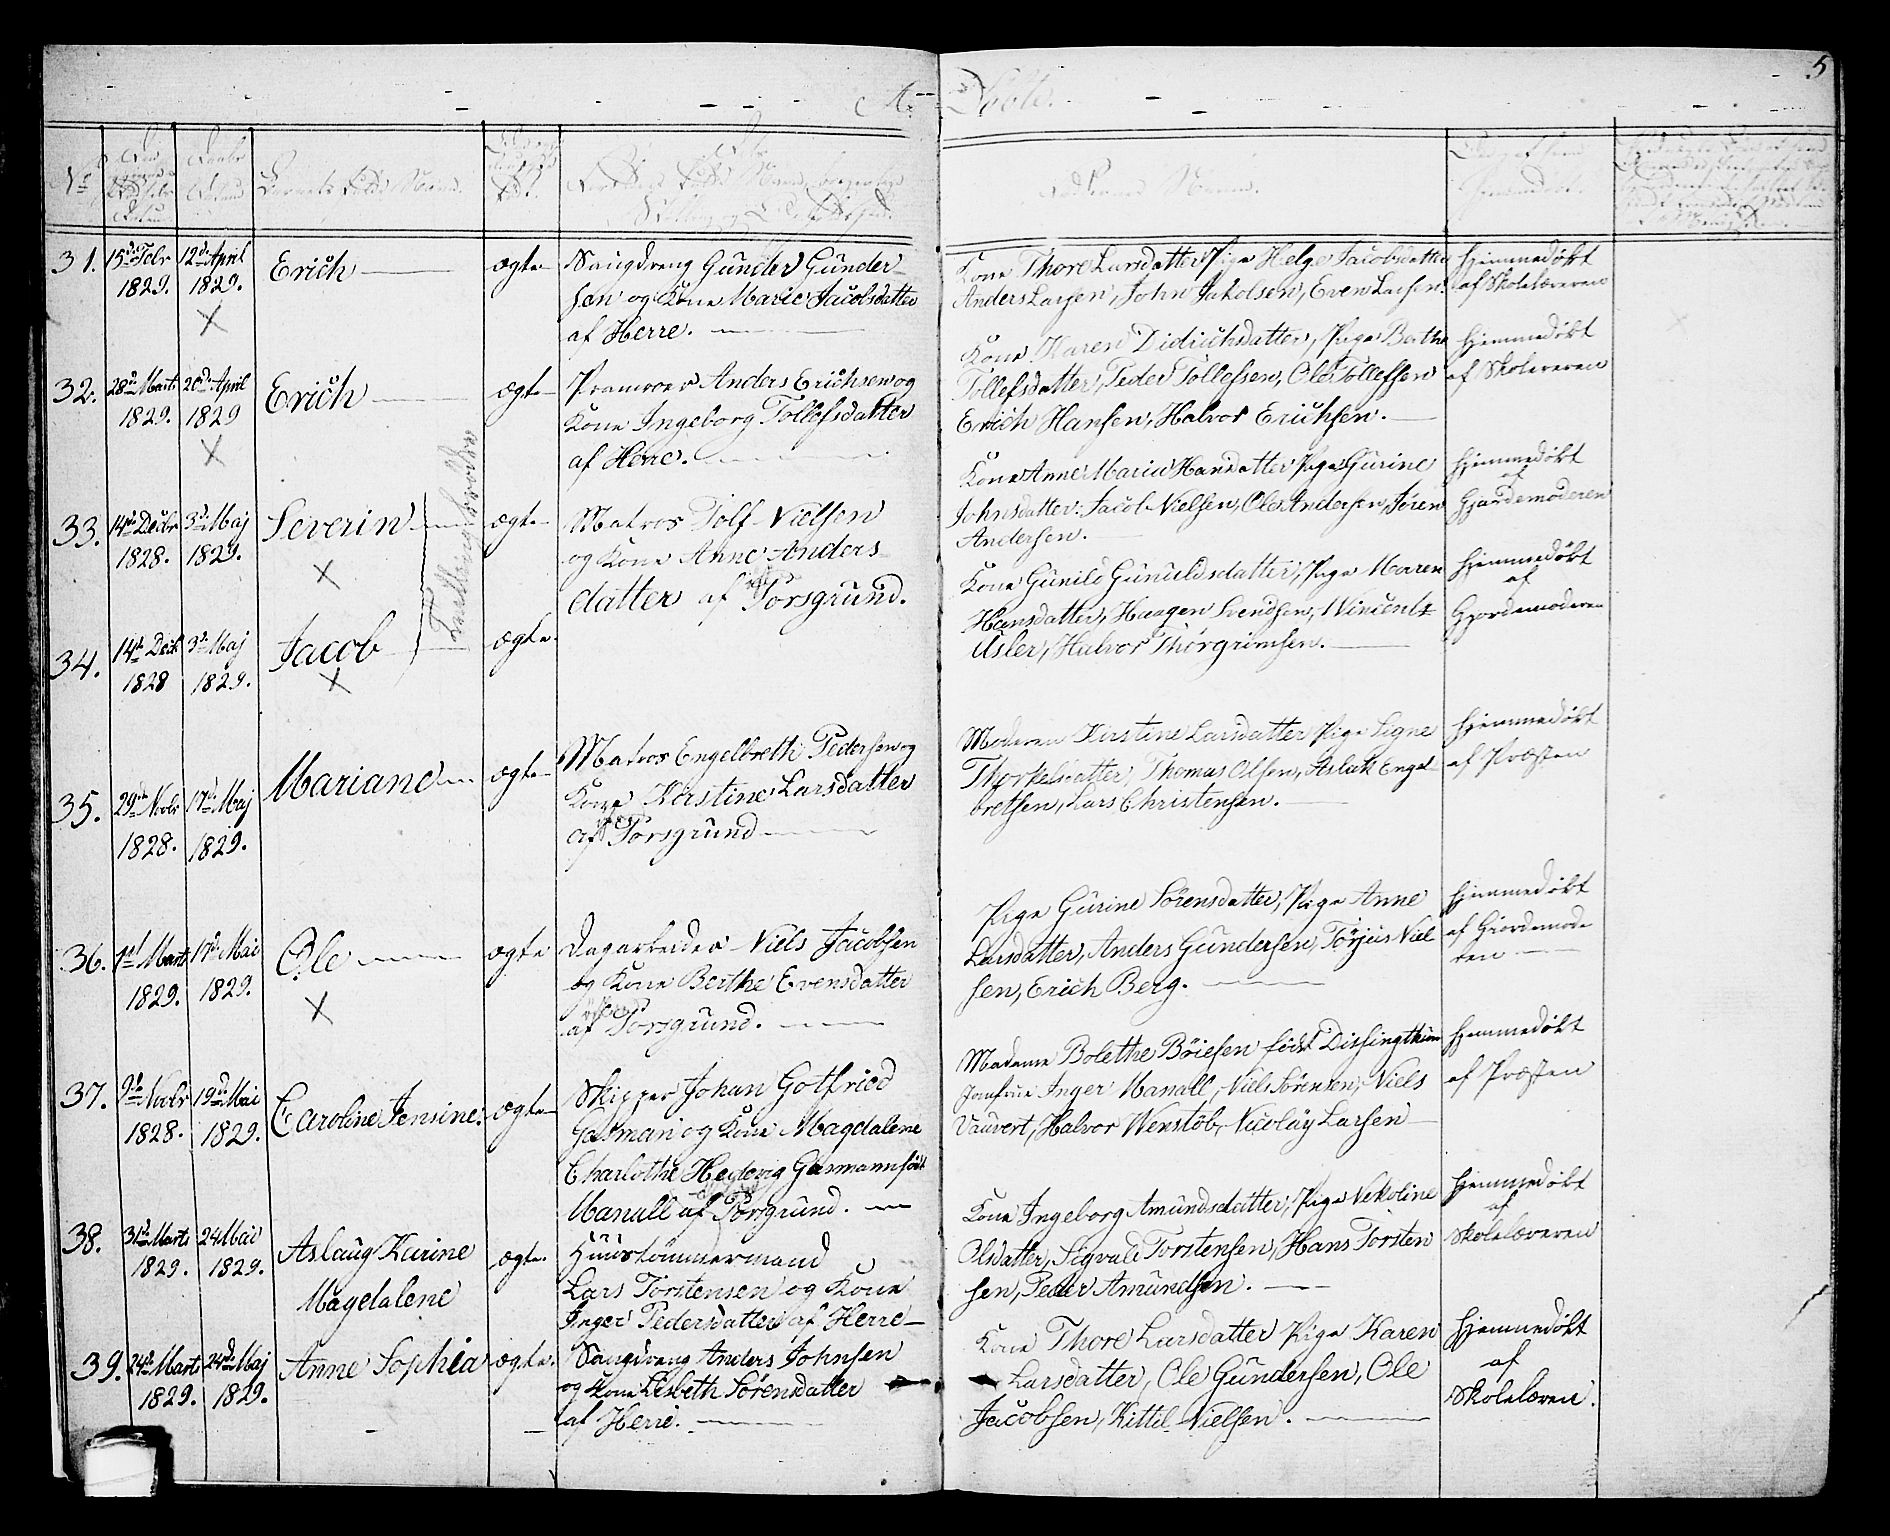 5
A. Døbte.
No
Barnets fulde Navn.
31.
15de Febr
1829.
12te April
1829.
Erich
ægte
Saugdreng Gunder Gunder-
sen og Kone Marie Jacobsdatter
af Herre.
Kone Thore Larsdatter, Pige Helge Jacobsdatter
Anders Larsen, John Jakobsen, Even Larsen.
Hjemmedøbt
af Skolelæreren
32.
28de Marts
1829.
20de April
1829
Erich
ægte
Pramroer Anders Erichsen og
Kone Ingeborg Tollefsdatter
af Herre.
Kone Karen Didrichsdatter, Pige Berthe
Tollefsdatter, Peder Tollefsen, Ole Tollefsen
Erich Hansen, Halvor Erichsen.
Hjemmedøbt
af Skolereren
33.
14de Decbr
1828.
3de Maj
1829.
Severin
Tvillingbrødre
ægte
Matros Tolf Nielsen
og Kone Anne Anders-
datter af Porsgrund.
Kone Anne Maria Hansdatter, Pige Gurine
Johnsdatter, Jacob Nielsen, Ole Andersen, Søren
Andersen.
Hjemmedøbt
af
Gjordemoderen
34.
14de Decb
1828
3de Maj
1829.
Jacob
ægte.
Kone Gunild Gunuldsdatter, Pige Maren
Hansdatter, Haagen Svendsen, Wincentz
Usler, Halvor Thorgrimsen.
Hjemmedøbt
af
Gjordemoderen
35.
29de Novbr
1828.
17de Maj
1829.
Mariane
ægte
Matros Engelbreth Pedersen og
Kone Kirstine Larsdatter
af Porsgrund
Moderen Kirstine Larsdatter, Pige Signe
Thorkelsdatter, Thomas Olsen, Aslak Engel-
bretsen, Lars Christensen.
Hjemmedøbt
af Præsten
36.
1st Marts
1829.
17de Mai
1829.
Ole
ægte
Dagarbeider Niels Jacobsen
og Kone Berthe Evensdatter
af Porsgrund.
Pige Gurine Sørensdatter, Pige Anne
Larsdatter, Anders Gundersen, Torjus Niel
sen, Erich Berg.
Hjemmedøbt
af Giordemode
ren
37.
9de Novbr
1828.
19de Mai
1829.
Caroline Jensine.
ægte
Skipper Johan Gotfried
Gasman og Kone Magdalene
Charlothe Hedevig Gasmann født
Manall af Porsgrund.
Madame Bolethe Böiesen født Dissingthun
Jomfrue Inger Manall, Niels Sörensen, Niels
Vauvert, Halvor Wenstöb, Nicolay Larsen
Hjemmedøbt
af Præsten
38.
31de Marts
1829.
24 Mai
1829.
Aslaug Karine
Magdalene
ægte.
Huustömmermand
Lars Torstensen og Kone
Inger Pedersdatter af Herre
Kone Ingeborg Amundsdatter, Pige Nekoline
Olsdatter, Sigvald Torstensen, Hans Torsten
sen, Peder Amundsen.
Hjemmedøbt
af
Skolelæreren
39.
24de Marts
1829.
24de Maj
1829.
Anne Sophia
ægte.
Saugdreng Anders Johnsen
og Kone Lisbeth Sørensdatter
af Herre.
Kone Thore Larsdatter, Pige Karen
Larsdatter, Ole Gundersen, Ole
Jacobsen, Kittil Nielsen.
Hjemmedøbt
af
Skolelæren.